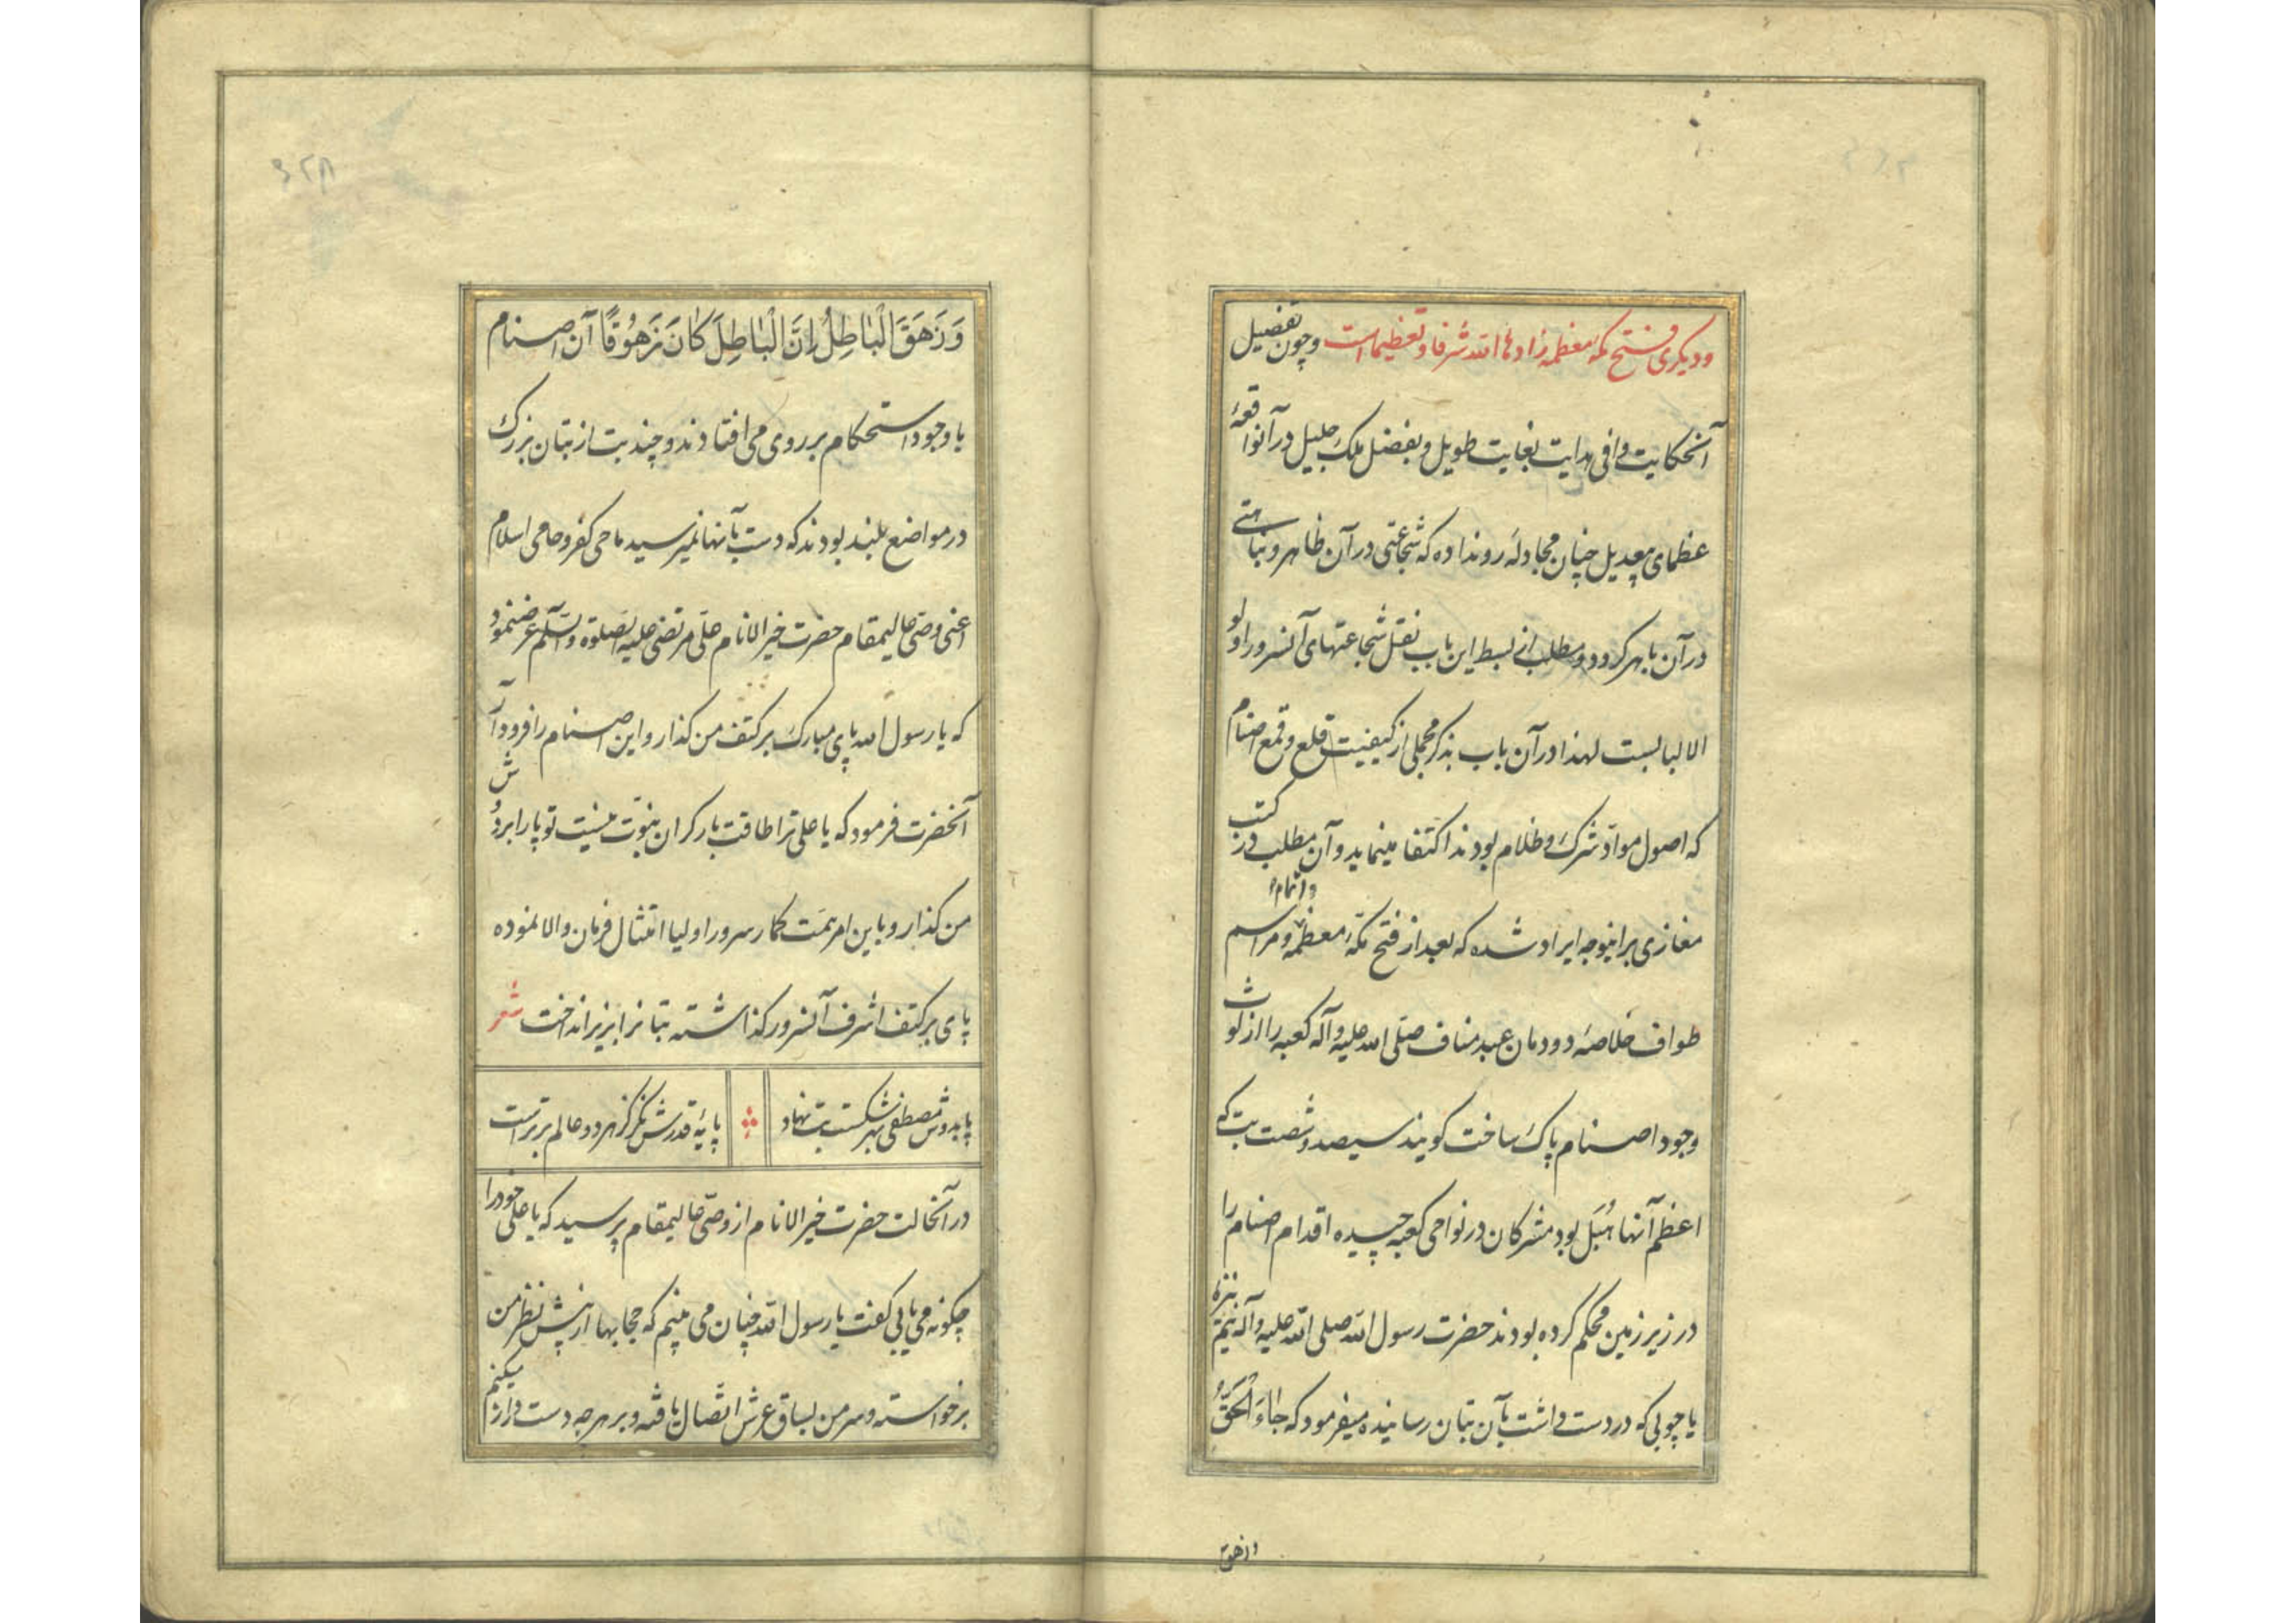 ودیکری فتح مکه معظمه زادها الله شرفا و تعظیما است وچون تفضیل
آنحکایت وافی هدایت بغایت طویل و بفضل ملک جلیل در آنواقعهٔ
عظمای بیعدیل چنان مجادلهٔ رونداده که شجاعتی در آن ظاهر و
در آن باهر کردد و مطلب از بسط این باب نقل شجاعتهای آنسرور اولو
الالبابست لهذا در آن باب بذکر مجملی از کیفیت قلع و قمع اصنام
که اصول موادّ شرک و ظلام بودند اکتفا مینماید و آن مطلب در کتب
مغازی براینوجه ایراد شده که بعد از فتح مکهٔ معظمه و اتمام مراسم
طواف خلاصهٔ دودمان عبد مناف صلی الله علیه وآله کعبه را از لوث
وجود اصنام پاک ساخت کویند سیصد و شصت بت که
اعظم آنها هُبَل بود مشرکان در نواحی کعبه چیده اقدام اصنام را
در زیر زمین محکم کرده بودند حضرت رسول الله صلی الله علیه وآله بنیم نیزه
یا چوبی که در دست داشت بآن بتان رسانیده میفرمود که جَاءَ الْحَقُّ
وزهق
۳۲۸
وَزَهَقَ الْبَاطِلُ اِنَّ الْبَاطِلَ كَانَ زَهُوقًا آن اصنام
با وجود استحکام بر روی می افتادند و چند بت از بتان بزرک
در مواضع بلند بودند که دست بآنها نمیرسید ماحی کفر و حامی اسلام
اعنی وصی عالیمقام حضرت خیر الانام علی مرتضی علیه الصلوة والسلم عرضنمود
که یا رسول الله پای مبارک بر کتف من کذار و این اصنام را فرود آر
آنحضرت فرمود که یا علی ترا طاقت بار کران نبوّت نیست تو پا را بر دوش
من کذار و باین امر همت کمار سرور اولیا امتثال فرمان والا نموده
پای بر کتف اشرف آنسرور کذاشته بتانرا بزیر انداخت شعر
پا بدوش مصطفی بهر شکست بت نهاد پایهٔ قدرش نکر کز هر دو عالم برتر است
در آنحالت حضرت خیر الانام از وصی عالیمقام پرسید که یا علی خود را
چکونه می یابی کفت یا رسول الله چنان می بینم که حجابها از پیش نظر من
برخواسته و سر من بساق عرش اتّصال یافته و بر هر چه دست دراز میکنم